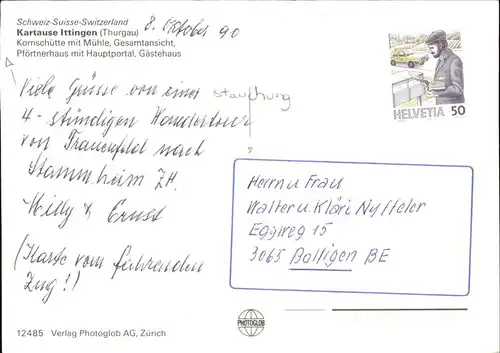 Schweiz-Suisse-Switzerland
Kartause Ittingen (Thurgau)
Kornschütte mit Mühle, Gesamtansicht,
Pförtnerhaus mit Hauptportal, Gästehaus
8. Oktober 90
HELVETIA 50
Viele Grüsse von einer
stauchung
4-stündigen Wandertour
von Frauenfeld nach
Stammheim ZH.
Willy & Ernst
(Karte vom fahrenden
Zug!!)
Herrn u Frau
Walter u. Kläri Nyffeler
Eggweg 15
3065 Bolligen BE
PHOTOGLOB
12485 Verlag Photoglob AG, Zürich